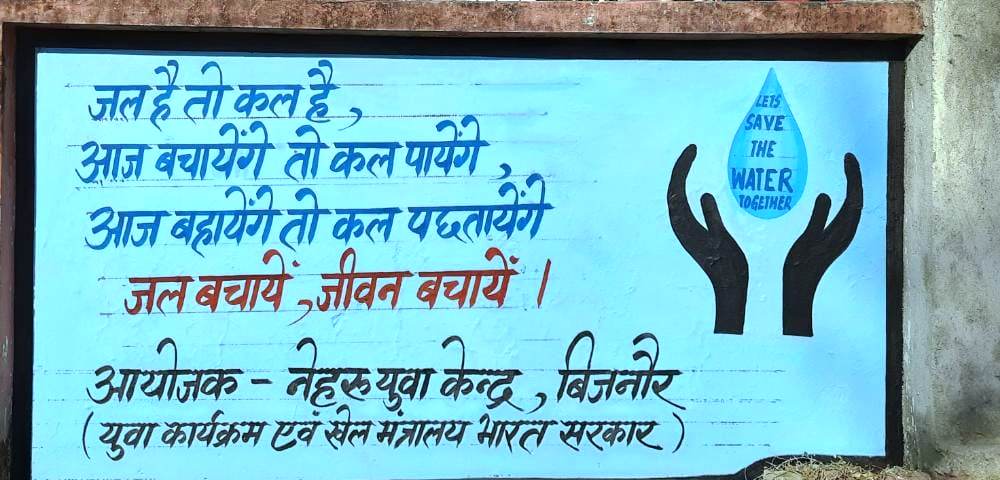 जल है तो कल है,
आज बचायेंगे तो कल पायेंगे,
आज बहायेंगे तो कल पछतायेंगे
जल बचायें, जीवन बचायें ।
आयोजक - नेहरू युवा केन्द्र, बिजनौर
(युवा कार्यक्रम एवं खेल मंत्रालय भारत सरकार)
LETS
SAVE
THE
WATER
TOGETHER